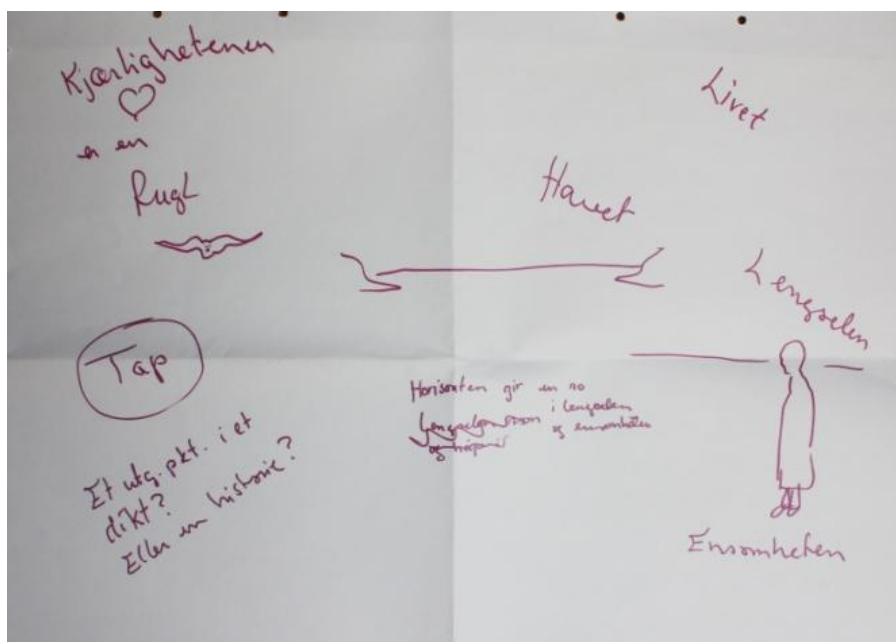 Kjærlighetenen
er en
Fugl
Tap
Et utg.pkt. i et
dikt?
Eller en historie?
Livet
Havet
Lengselen
Horisonten gir en ro
i lengselen
og ensomheten
Ensomheten